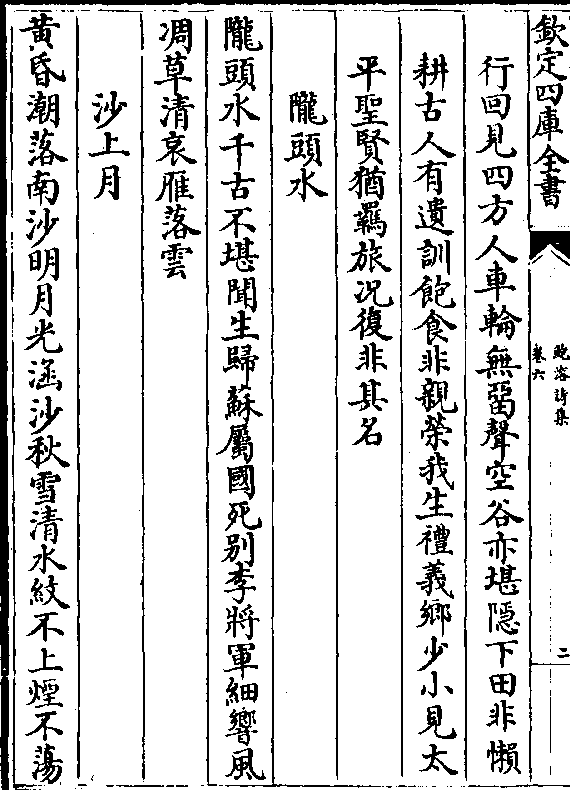 欽定四庫全書
鮑溶詩集
卷六
二
行回見四方人車輪無㽞聲空谷亦堪隠下田非懶
耕古人有遺訓飽食非親榮我生禮義鄉少小見太
平聖賢猶羈旅况復非其名
隴頭水
隴頭水千古不堪聞生歸蘇屬國死别李將軍細響風
凋草清哀雁落雲
沙上月
黄昏潮落南沙明月光涵沙秋雪清水紋不上煙不蕩